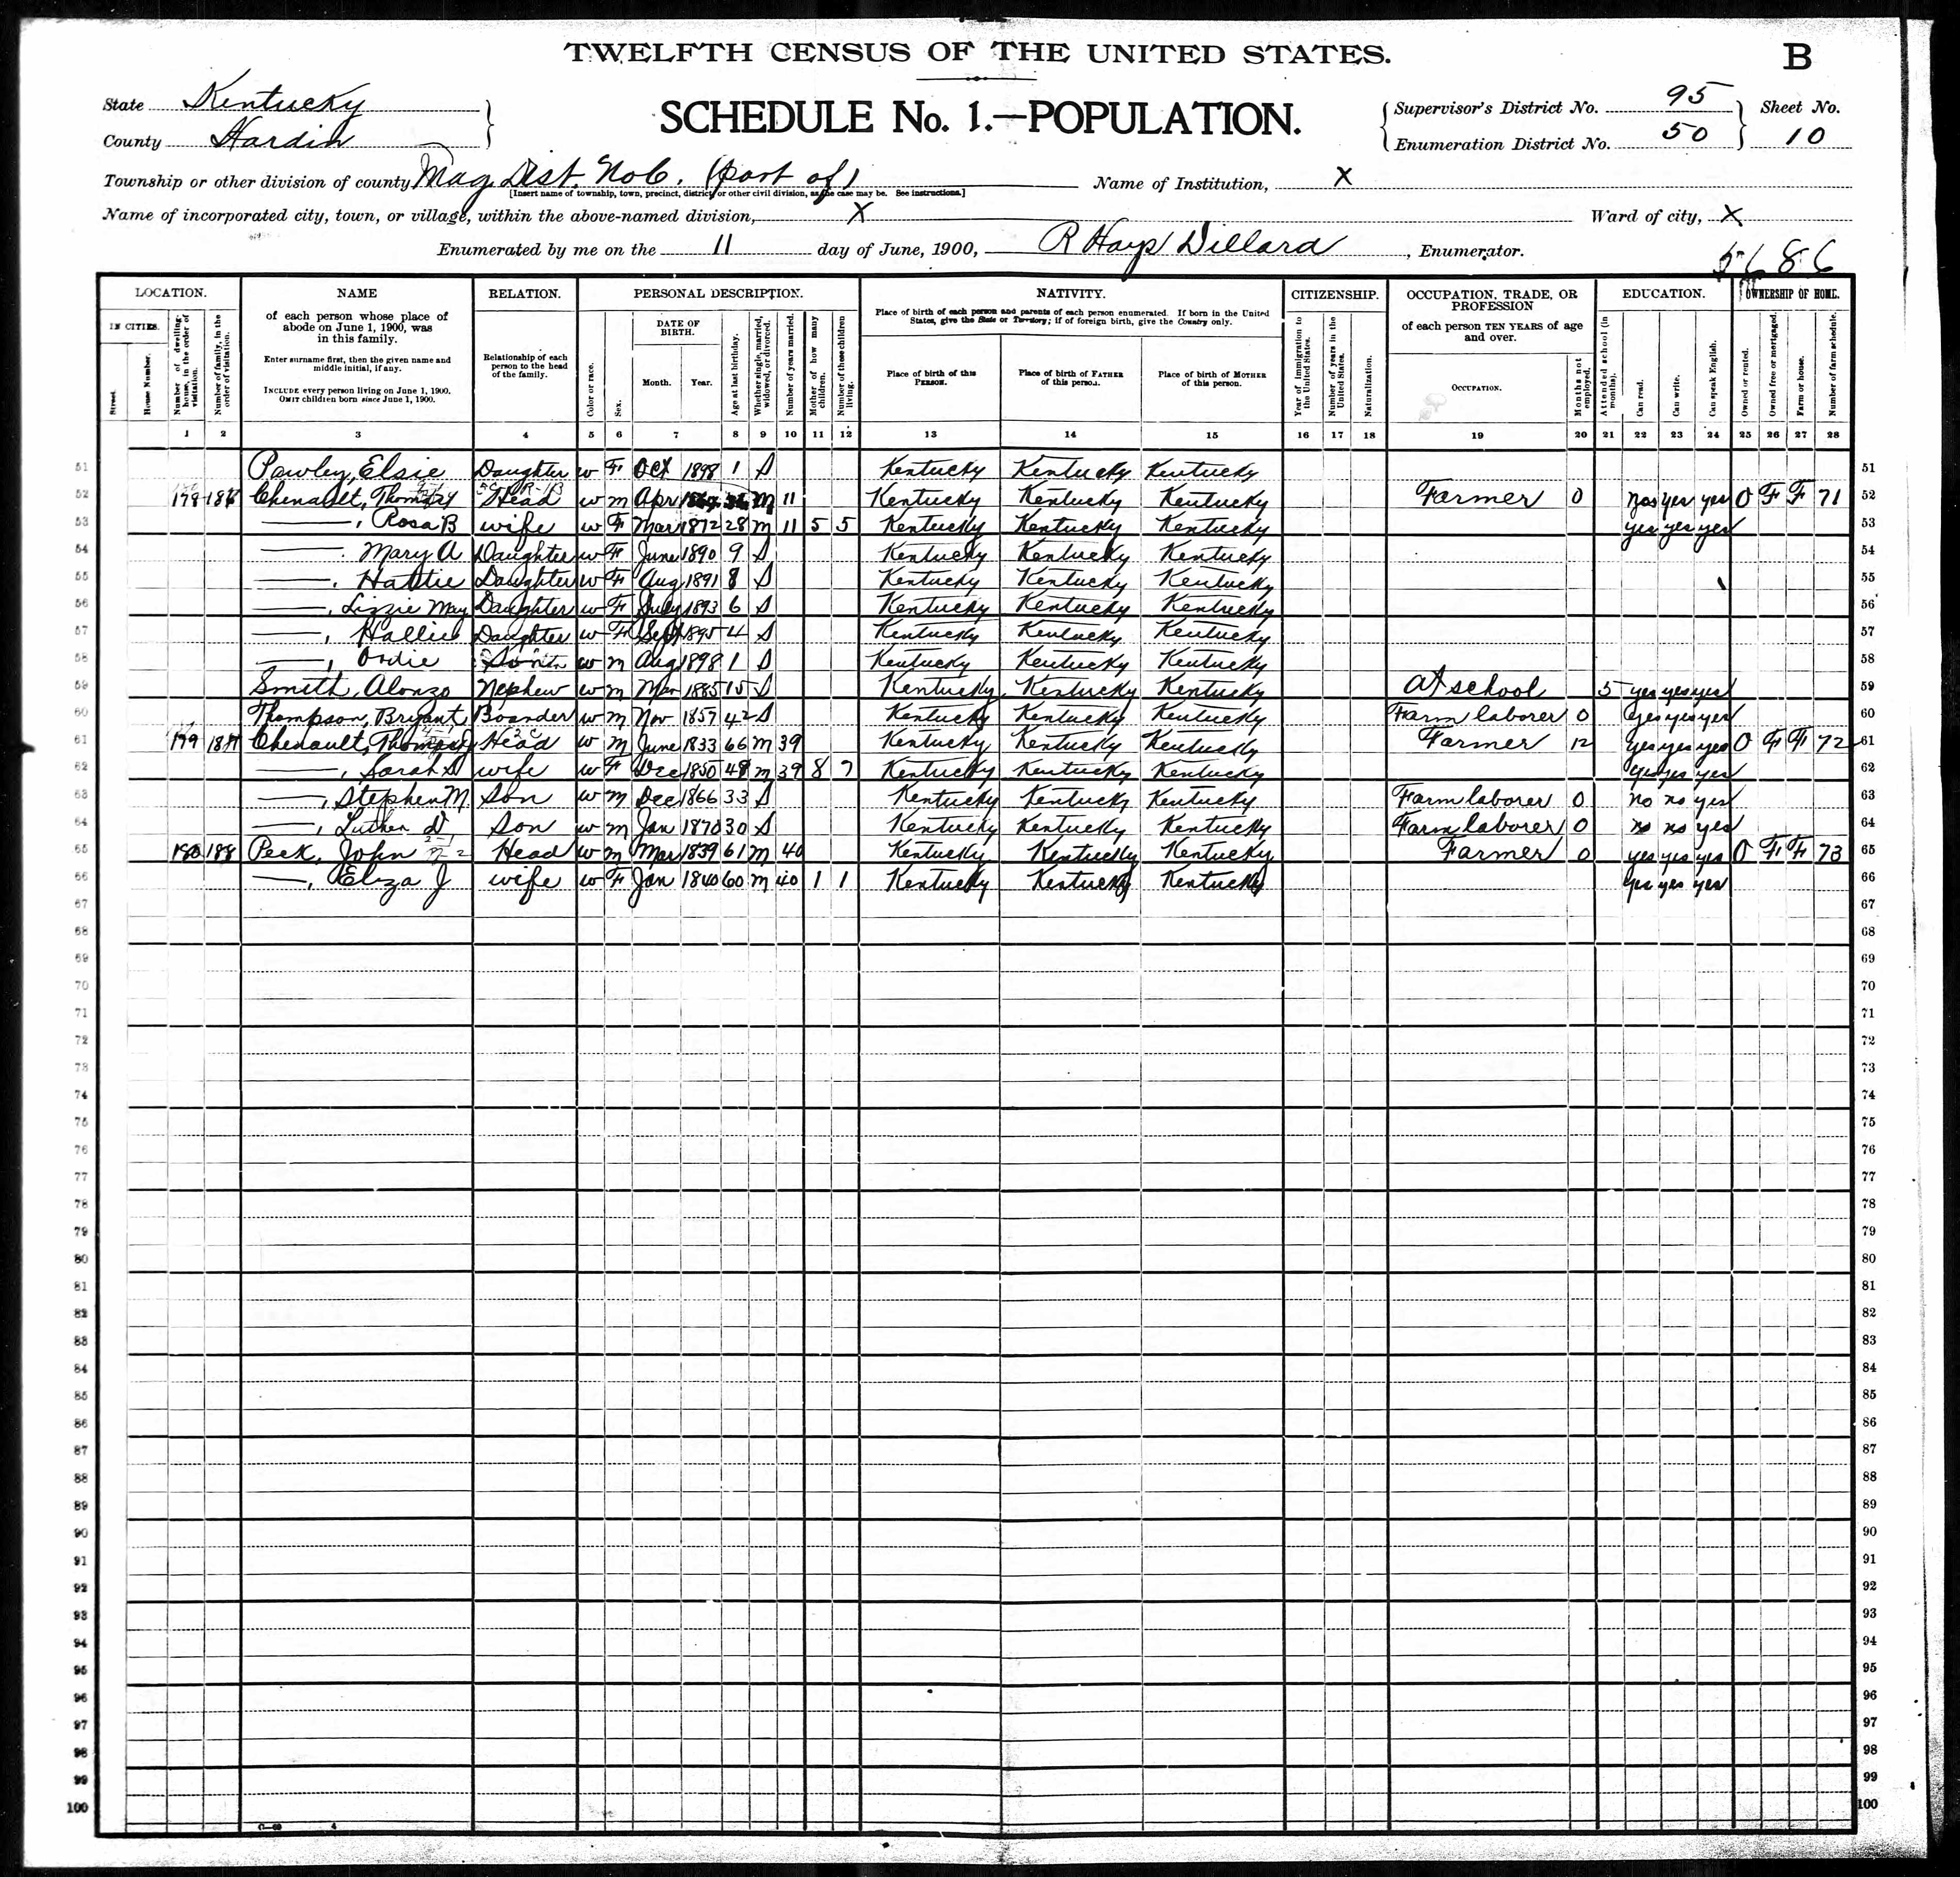 TWELFTH CENSUS OF THE UNITED STATES.
B
State Kentucky
County Hardin
SCHEDULE No. 1.—POPULATION.
Supervisor's District No. 95
Enumeration District No. 50
Sheet No.
10
Township or other division of county Mag. Dist. No 6. (part of)
[Insert name of township, town, precinct, district, or other civil division, as the case may be. See instructions.]
Name of Institution, X
Name of incorporated city, town, or village, within the above-named division, X
Ward of city, X
Enumerated by me on the 11 day of June, 1900, R Hays Dillard, Enumerator.
LOCATION.
IN CITIES.
Street.
House Number.
Number of dwelling-house in the order of visitation.
Number of family, in the order of visitation.
NAME
of each person whose place of abode on June 1, 1900, was in this family.
Enter surname first, then the given name and middle initial, if any.
INCLUDE every person living on June 1, 1900.
OMIT children born since June 1, 1900.
RELATION.
Relationship of each person to the head of the family.
PERSONAL DESCRIPTION.
Color or race.
Sex.
DATE OF BIRTH.
Month. Year.
Age at last birthday.
Whether single, married, widowed, or divorced.
Number of years married.
Mother of how many children.
Number of these children living.
NATIVITY.
Place of birth of each person and parents of each person enumerated. If born in the United States, give the State or Territory; if of foreign birth, give the Country only.
Place of birth of this PERSON.
Place of birth of FATHER of this person.
Place of birth of MOTHER of this person.
CITIZENSHIP.
Year of immigration to the United States.
Number of years in the United States.
Naturalization.
OCCUPATION, TRADE, OR PROFESSION
of each person TEN YEARS of age and over.
OCCUPATION.
Months not employed.
EDUCATION.
Attended school (in months).
Can read.
Can write.
Can speak English.
OWNERSHIP OF HOME.
Owned or rented.
Owned free or mortgaged.
Farm or house.
Number of farm schedule.
1 2 3 4 5 6 7 8 9 10 11 12 13 14 15 16 17 18 19 20 21 22 23 24 25 26 27 28
51 Pawley, Elsie Daughter w F Oct 1898 1 S Kentucky Kentucky Kentucky 51
52 Chenault, Head w m Apr m 11 Kentucky Kentucky Kentucky Farmer 0 yes yes yes O F F 71 52
53 ——, Rosa B wife w F Mar 1872 28 m 11 5 5 Kentucky Kentucky Kentucky yes yes yes 53
54 ——. Mary A Daughter w F June 1890 9 S Kentucky Kentucky Kentucky 54
55 ——, Hattie Daughter w F Aug 1891 8 S Kentucky Kentucky Kentucky 55
56 ——, Lizzie May Daughter w F July 1893 6 S Kentucky Kentucky Kentucky 56
57 ——, Hallie Daughter w F Sept 1895 4 S Kentucky Kentucky Kentucky 57
58 ——, Ordie Son w m Aug 1898 1 S Kentucky Kentucky Kentucky 58
59 Smith, Alonzo Nephew w m Mar 1885 15 S Kentucky Kentucky Kentucky At school 5 yes yes yes 59
60 Thompson, Bryant Boarder w m Nov 1857 42 S Kentucky Kentucky Kentucky Farm laborer 0 yes yes yes 60
61 179 Chenault, Head w m June 1833 66 m 39 Kentucky Kentucky Kentucky Farmer 12 yes yes yes O F F 72 61
62 ——, Sarah wife w F Dec 1850 m 39 8 7 Kentucky Kentucky Kentucky yes yes yes 62
63 ——, Stephen M Son w m Dec 1866 33 S Kentucky Kentucky Kentucky Farm laborer 0 no no yes 63
64 ——, Luther D Son w m Jan 1870 30 S Kentucky Kentucky Kentucky Farm laborer 0 no no yes 64
65 180 188 Peck, John Head w m Mar 1839 61 m 40 Kentucky Kentucky Kentucky Farmer 0 yes yes yes O F F 73 65
66 ——, Eliza J wife w F Jan 1840 60 m 40 1 1 Kentucky Kentucky Kentucky yes yes yes 66
67 67
68 68
69 69
70 70
71 71
72 72
73 73
74 74
75 75
76 76
77 77
78 78
79 79
80 80
81 81
82 82
83 83
84 84
85 85
86 86
87 87
88 88
89 89
90 90
91 91
92 92
93 93
94 94
95 95
96 96
97 97
98 98
99 99
100 100